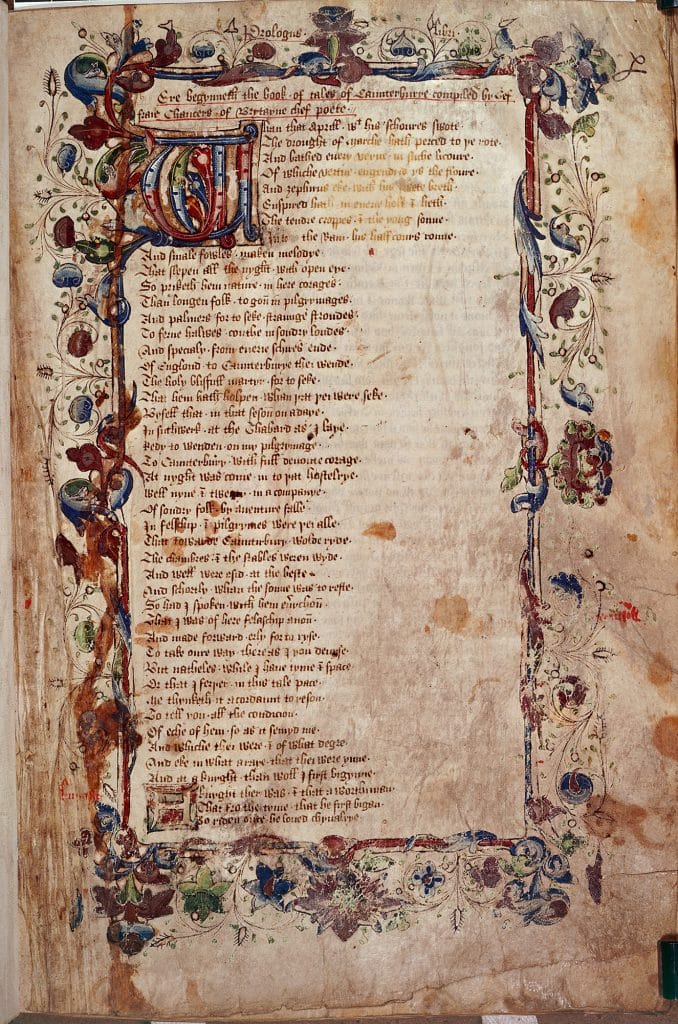 Prologus libri
Here begynneth the book of tales of Caunterburye compiled by Gef
fraie Chaucers of Brytayne chef poete
Whan that Aprill wt his schoures swote
The drought of marche hath perced to ye rote
And bathed euery veyne in suche licoure
Of whiche vertue engendrid ys the floure
And zephirus eke with his swete breth
Enspired hath in euery holt & heth
The tendre croppes & the yong sonne
In to the Ram his half cours ronne
And smale fowles maken melodye
That slepen all the nyght with open eye
So priketh hem nature in here corages
Than longen folk to gon in pilgrymages
And palmers for to seke straunge strondes
To ferne halwes couthe in sondry londes
And specialy from euerie schires ende
Of Englond to Caunterburye thei wende
The holy blisfull martyr for to seke
That hem hath holpen whan þat þei were seke
Byfell that in that seson on a daye
In suthwerk at the Thabard as I laye
Redy to wenden on my pilgrymage
To Caunterbury with full deuoute corage
At nyght was come in to þat hostelrye
Well nyne & twenty in a companye
Of sondry folk by auenture falle
In felschip & pilgrymes were þei alle
That towarde Caunterbury wolde ryde
The chambres & the stables weren wyde
And well were esid at the beste
And schortly whan the sonne was to reste
So had I spoken with hem euerychoun
That I was of here felaschip anoun
And made forward erly for to ryse
To take oure way there as I you deuise
But natheles while I haue tyme & space
Or that I ferþer in this tale pace
Me thynketh it acordaunt to reson
To tell you all the condicion
Of eche of hem so as it semyd me
And whiche thei were & of what degre
And eke in what araye that thei were ynne
And at a knyght than woll I first bigynne
A knyght ther was & that a worthi man
That fro the tyme that he first bigan
To ryden oute he loued chyualrye